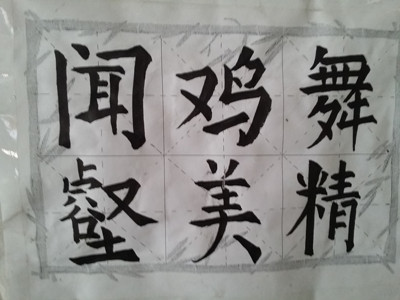 闻鸡舞
壑美精